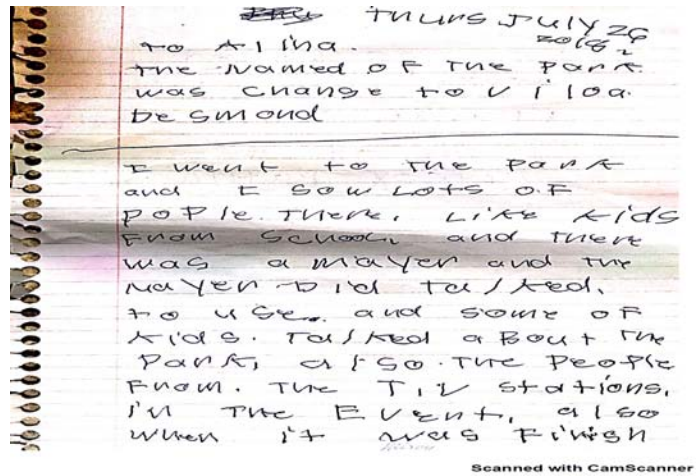 Thurs July 26
2018
to Alina.
the Named of the Park
was change to Viloa
Desmond
I went to the Park
and I sow Lots of
pople There. Like kids
From School, and There
was a mayer and the
Mayer Did talked.
to use. and some of
kids. talked about the
Park, also the People
From. The T.V stations,
in The Event, also
when it was Finish
Scanned with CamScanner